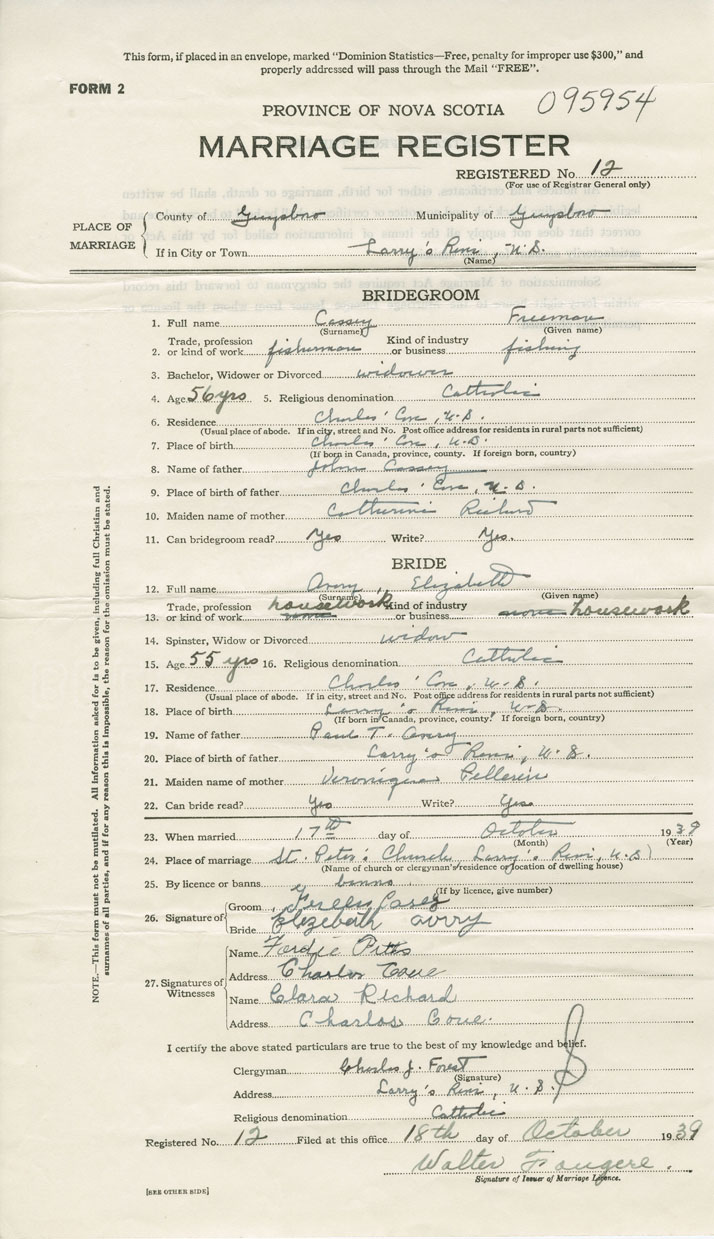 This form, if placed in an envelope, marked "Dominion Statistics—Free, penalty for improper use $300," and
properly addressed will pass through the Mail "FREE".
FORM 2
PROVINCE OF NOVA SCOTIA 095954
MARRIAGE REGISTER
REGISTERED No. 12
(For use of Registrar General only)
PLACE OF MARRIAGE
County of Guysboro Municipality of Guysboro
If in City or Town Larry's River, N.S.
(Name)
BRIDEGROOM
1. Full name Cassey Freeman
(Surname) (Given name)
2. Trade, profession or kind of work fisherman Kind of industry or business fishing
3. Bachelor, Widower or Divorced widower
4. Age 56 yrs 5. Religious denomination Catholic
6. Residence Charles' Cove, N.S.
(Usual place of abode. If in city, street and No. Post office address for residents in rural parts not sufficient)
7. Place of birth Charles' Cove, N.S.
(If born in Canada, province, county. If foreign born, country)
8. Name of father John Cassey
9. Place of birth of father Charles' Cove, N.S.
10. Maiden name of mother Catherine Richard
11. Can bridegroom read? Yes Write? Yes.
BRIDE
12. Full name Avery, Elizabeth
(Surname) (Given name)
13. Trade, profession or kind of work none housework Kind of industry or business none housework
14. Spinster, Widow or Divorced widow
15. Age 55 yrs 16. Religious denomination Catholic
17. Residence Charles' Cove, N.S.
(Usual place of abode. If in city, street and No. Post office address for residents in rural parts not sufficient)
18. Place of birth Larry's River, N.S.
(If born in Canada, province, county. If foreign born, country)
19. Name of father Paul T. Avery
20. Place of birth of father Larry's River, N.S.
21. Maiden name of mother Veronique Pellerin
22. Can bride read? Yes Write? Yes
23. When married 17th day of October 1939
(Month) (Year)
24. Place of marriage St. Peter's Church Larry's River, N.S)
(Name of church or clergyman's residence or location of dwelling house)
25. By licence or banns banns
(If by licence, give number)
26. Signature of
Groom Casey
Bride Elezeberth avrry
27. Signatures of Witnesses
Name Fordie Pitts
Address Charlos Coue
Name Clara Richard
Address Charlos Coue.
I certify the above stated particulars are true to the best of my knowledge and belief.
Clergyman Charles J. Forest
(Signature)
Address Larry's River, N.S.
Religious denomination Catholic
Registered No. 12 Filed at this office 18th day of October 1939
Walter Fougere.
Signature of Issuer of Marriage Licence.
[SEE OTHER SIDE]
NOTE.—This form must not be mutilated. All Information asked for is to be given, including full Christian and
surnames of all parties, and if for any reason this is impossible, the reason for the omission must be stated.